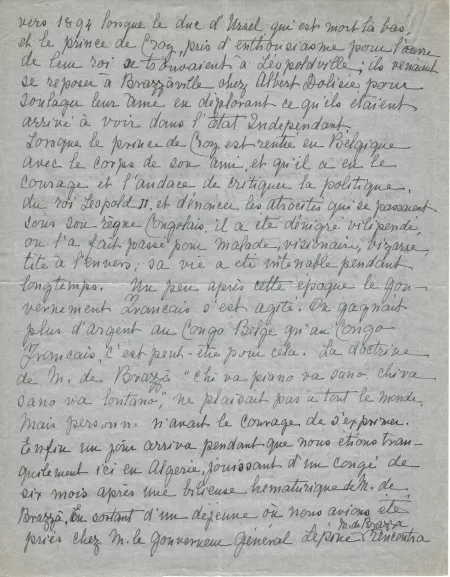 vers 1894 lorsque le duc d'Ursel qui est mort là bas,
et le prince de Croy, pris d'enthousiasme pour l'œuvre
de leur roi se trouvaient à Léopoldville ; ils venaient
se reposer à Brazzaville chez Albert Dolisie, pour
soulager leur âme en déplorant ce qu'ils étaient
arrivé à voir dans l'Etat Indépendant.
Lorsque le prince de Croy est rentré en Belgique
avec le corps de son ami, et qu'il a eu le
courage et l'audace de critiquer la politique,
du roi Léopold II, et dénoncer les atrocités qui se passaient
sous son règne Congolais, il a été dénigré vilipendé,
on l'a fait passé pour malade, visionnaire, bizarre,
tête à l'envers ; sa vie a été intenable pendant
longtemps. Un peu après cette époque le gou-
vernement Francais s'est agité. On gagnait
plus d'Argent au Congo Belge qu'au Congo
Francais, c'est peut-être pour cela. La doctrine
de M. de Brazzà "chi va piano va sano chi va
sano va lontano", ne plaisait pas à tout le monde,
mais personne n'avait le courage de s'exprimer.
Enfin un jour arriva pendant que nous étions tran-
quilement ici en Algérie, jouissant d'un congé de
six mois après une bilieuse hématurique de M. de
Brazzà, En sortant d'un déjeuné où nous avions été
priés chez M. le Gouverneur Général Lépine M. de Brazzà rencontra